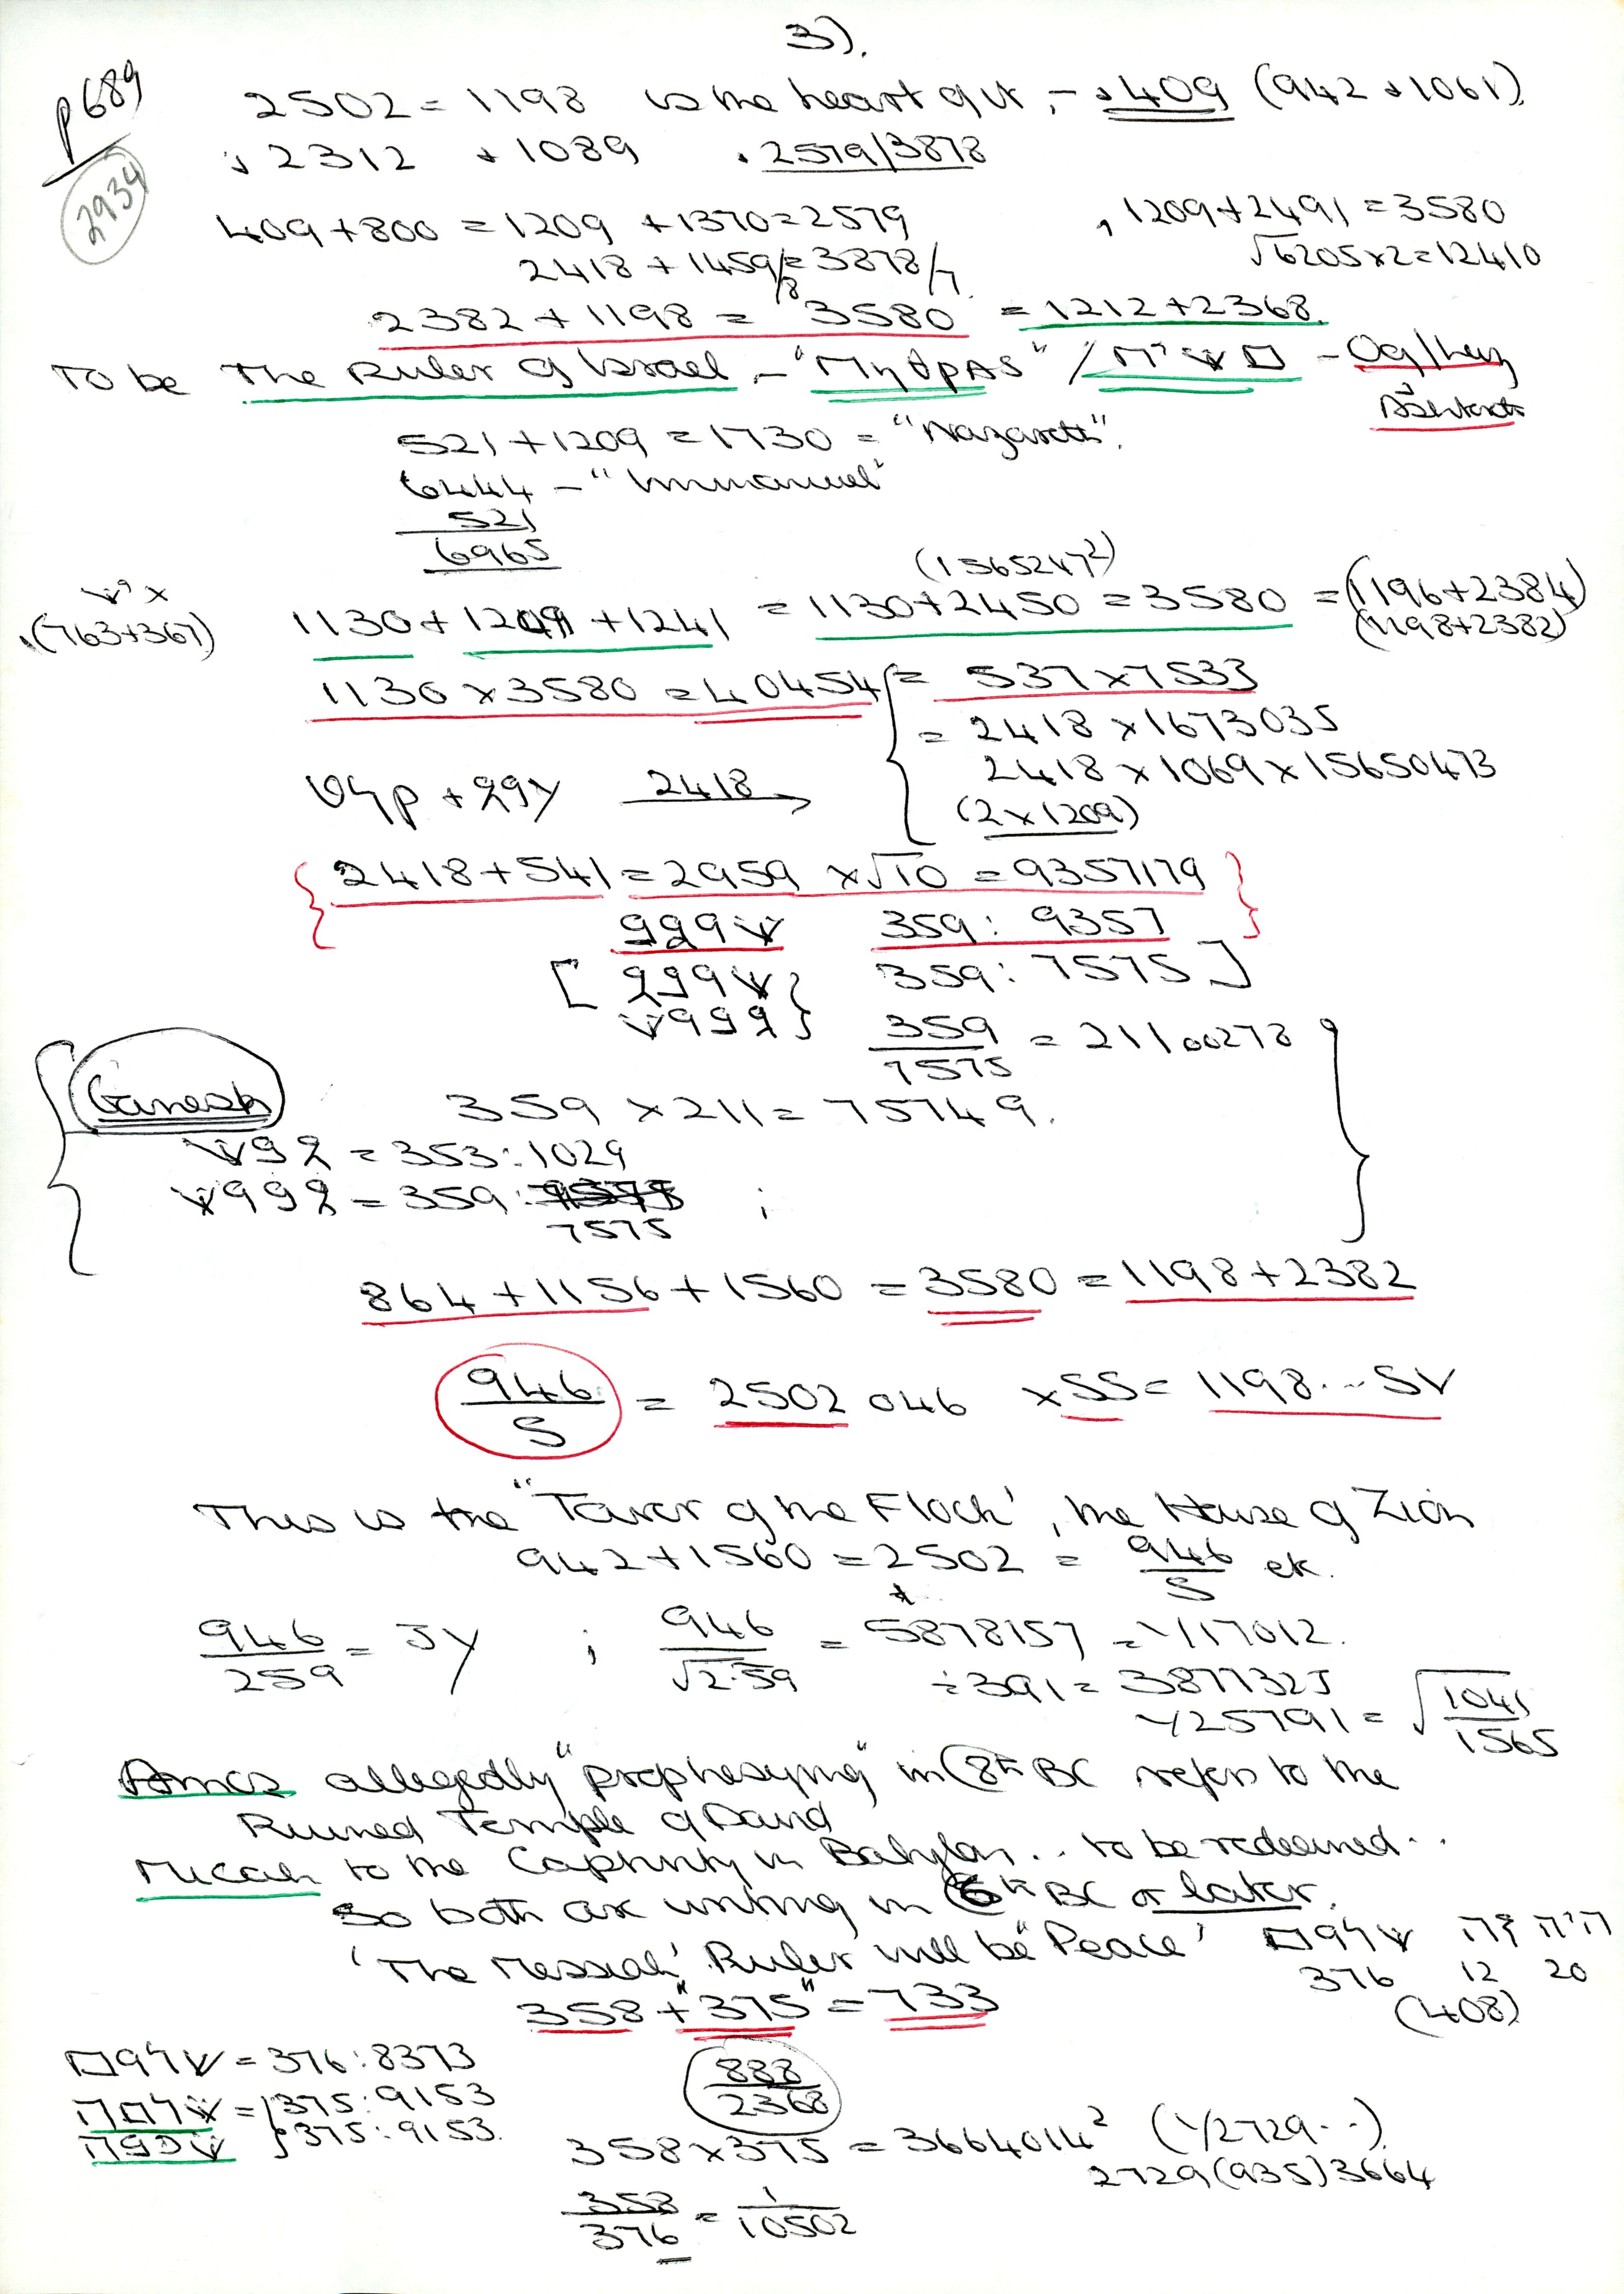 3).
p689
2934
2502 = 1198 is the heart of it, - +409 (942 + 1061).
+ 2312 + 1089 . 2579/3878
409+800 = 1209 +1370=2579 , 1209+2491 = 3580
2418 + 1459/8 = 3878/7. √6205×2=12410
2382 + 1198 = 3580 = 1212+2368.
To be The Ruler of Israel, - - Og/
521+1209 = 1730 = "Nazareth".
6444 - "Immanuel"
521
6965
(1565247²)
(763+367) 1130 + 1209 + 1241 = 1130+2450 = 3580 = (1196+2384)
(1198+2382)
1130 × 3580 = 40454 = 537×7533
= 2418 × 1673035
2418 × 1069 × 15650473
2418
(2×1209)
{ 2418+541 = 2959 ×√10 = 9357179 }
359: 9357
359: 7575 ]
359/7575 = 21100278
Ganesh 359 × 211 = 75749.
= 353:1029
= 359: ;
7575
864 + 1156 + 1560 = 3580 = 1198 + 2382
946/S = 2502 046 ×SS = 1198...SV
This is the "Tower of the Flock', the House of Zion
942+1560 = 2502 = 946/S etc.
946/259 = JY ; 946/√2.59 = 5878157 = Y17012.
÷391 = 387732J
Y25791 = √1041/1565
Amos allegedly "prophesying" in 8th BC refers to the
Ruined Temple of David
Micah to the Captivity in Babylon.. to be redeemed..
so both are writing in 6th BC or later.
'The Messiah', Ruler will be "Peace'
376 12 20
(408)
358 + "375" = 733
= 376:8373
= 375:9153
375:9153.
888/2368
358×375 = 3664014² (Y2729..)
2729(935)3664
358/376 = 1/10502